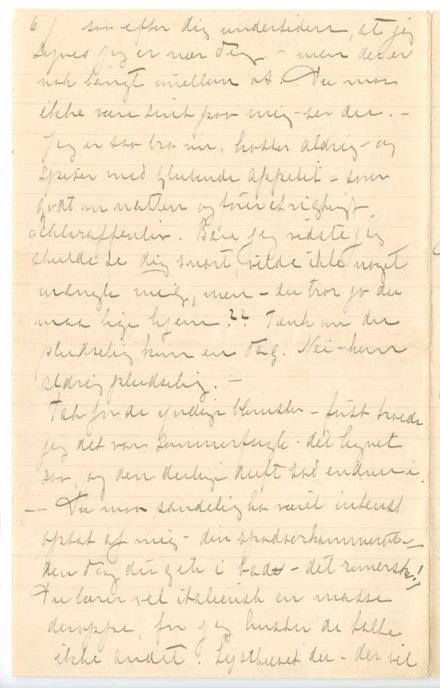 6/ saa efter dig undertiden, at jeg
synes jeg er nær dig - men der er
nok langt imellem os. Du maa
ikke være sint paa mig - ser du. -
Jeg er saa bra nu, hoster aldrig - og
spiser med glubende appetit - sover
godt om natten og fører et rigtigt
Schlaraffenliv. Bare jeg vidste jeg
skulde se dig snart, vilde ikke noget
mangle mig, men - du tror jo du
maa lige hjem?? Tænk om du
pludselig kom en dag. Nei - kom
aldrig pludselig. -
Tak for de yndige blomster - først troede
jeg det var sommerfugle - det lignet
saa, og den deilige duft sad endnu i.
- Du maa sandelig ha været intenst
optat af mig - din
den dag du gik i bad - det romerske!
Du lærer vel italiensk en masse
deroppe, for jeg husker de talte
ikke andet. Lysthuset du - der vil